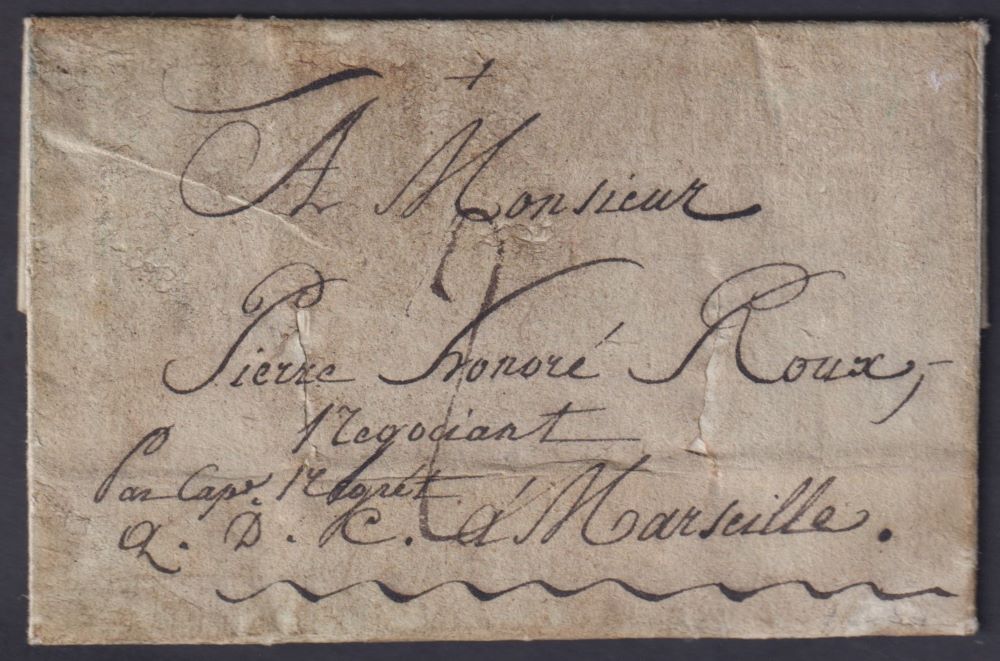 A Monsieur
Pierre honoré Roux,
Negociant
Par Cape. Negrét
Q. D. C. á Marseille.